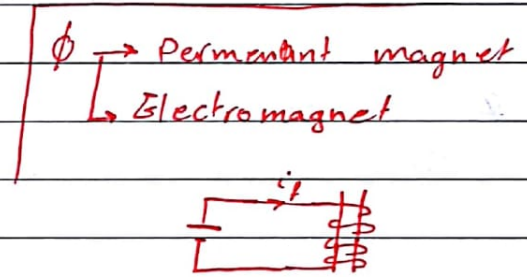 ϕ → Permenant magnet
↳ Electromagnet
if